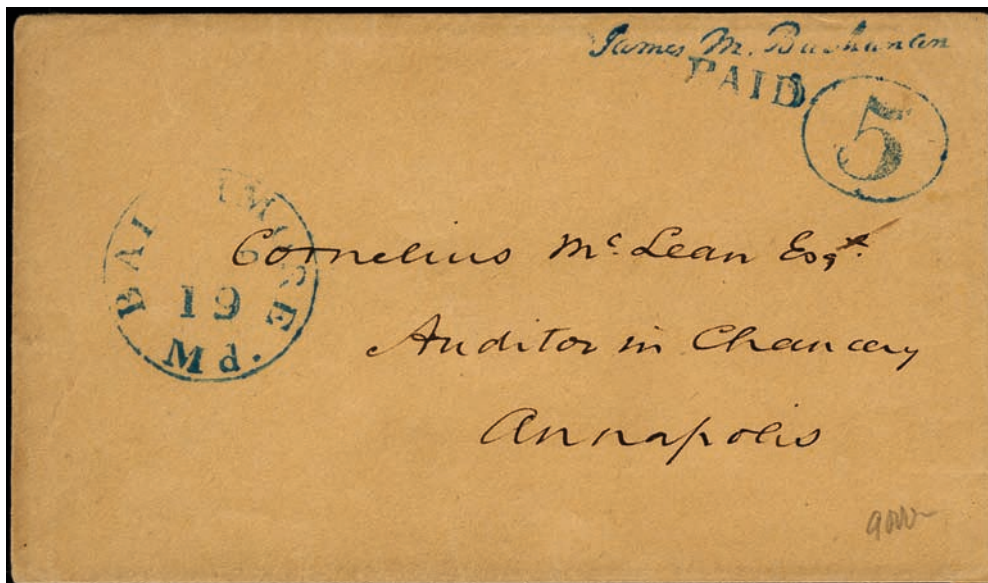 James M. Buchanan
PAID 5
BALTIMORE
19
Md.
Cornelius McLean Esqr.
Auditor in Chancery
Annapolis